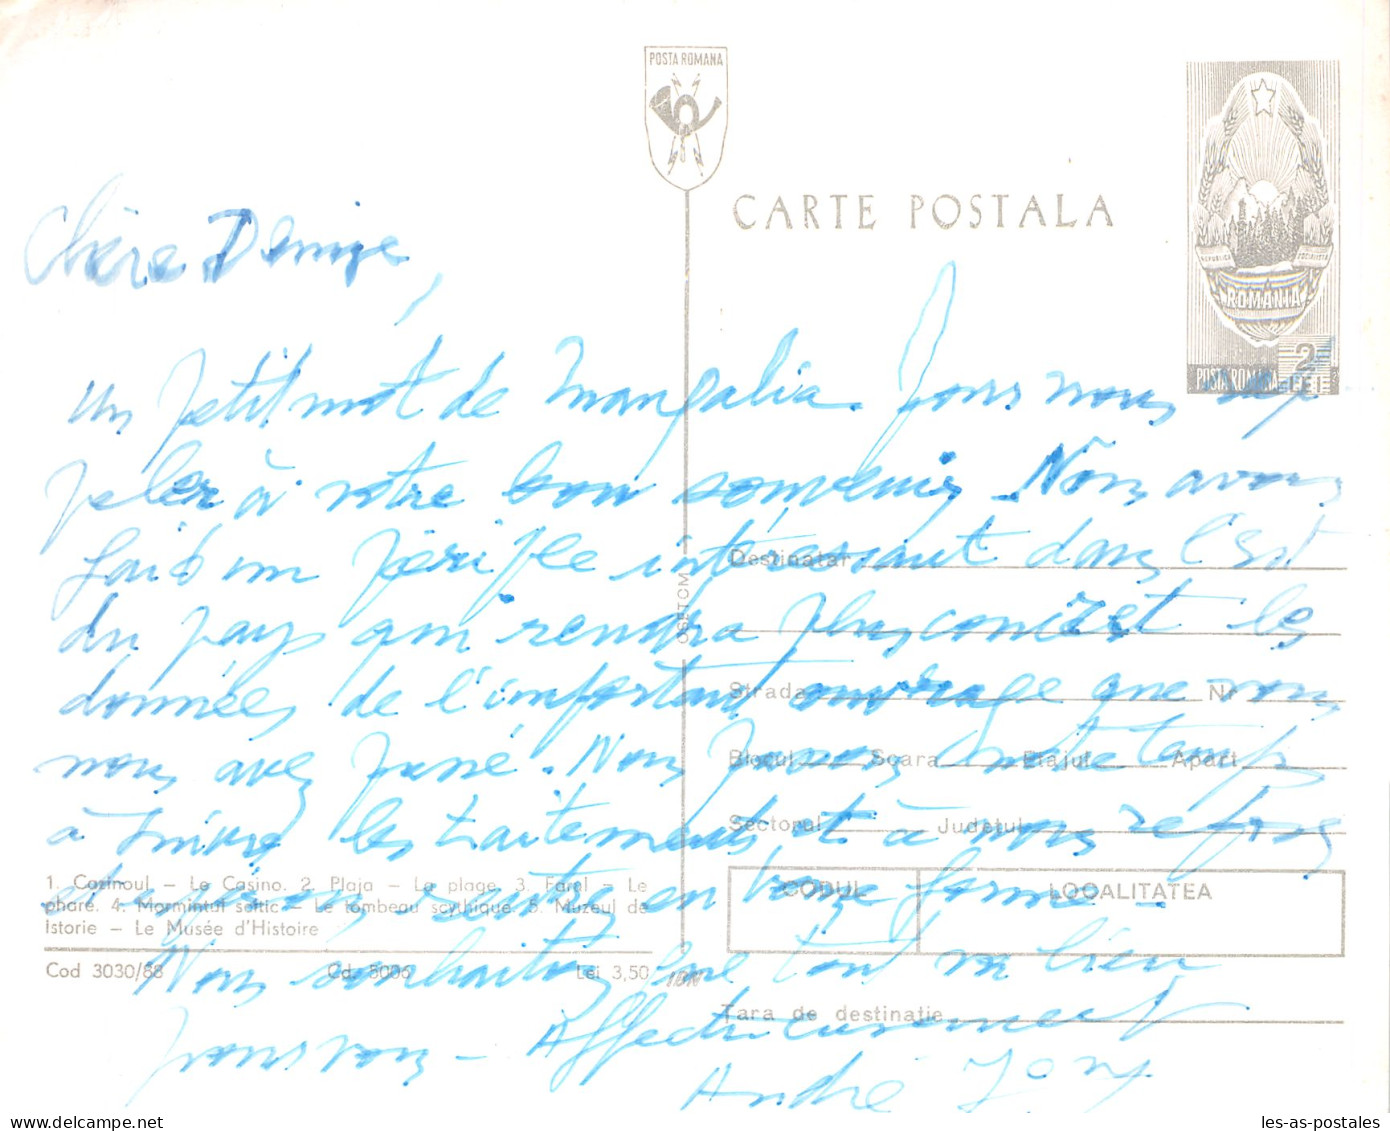 POSTA ROMANA
CARTE POSTALA
REPUBLICA SOCIALISTA
ROMANIA
2
POSTA ROMANA LEI
Chère Denise,
Un petit mot de Mangalia. Pour nous rap
peler à votre bon souvenir. Nous avons
fait un périple intéressant dans l'Est
du pays qui rendra plus concret les
données de l'important ouvrage que vous
nous avez
Nous
à suivre les traitements et à nous
rentrez en bonne forme.
Nous souhaitons que tout va bien
pour vous - Affectueusement
André
Destinatar
Strada Nr
Blocul Scara Etajul Apart
Sectorul Judetul
CODUL LOCALITATEA
Tara de destinatie
1. Cazinoul - Le Casino. 2. Plaja - La plage. 3. Farul - Le
phare. 4. Mormintul scitic - Le tombeau scythique. 5. Muzeul de
Istorie - Le Musée d'Histoire
Cod 3030/88 Cd. 5006 Lei 3,50
les-as-postales